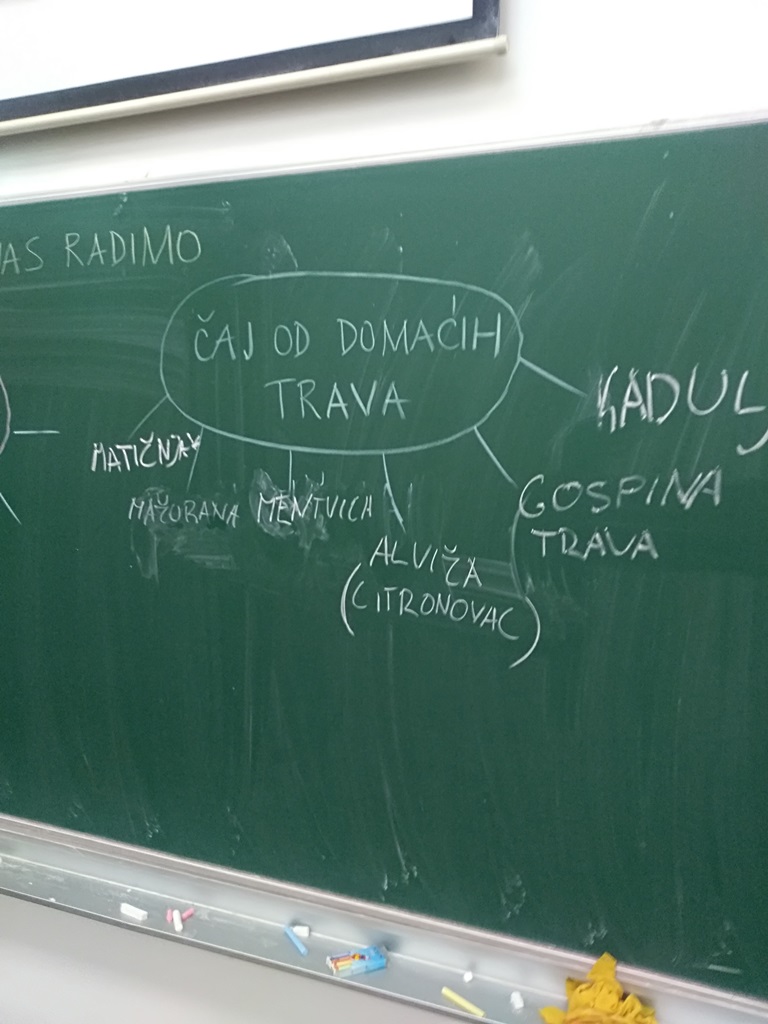 AS RADIMO
ČAJ OD DOMAĆIH
TRAVA
KADULJ
MATIČNJAK
MAŽURANA
MENTVICA
GOSPINA
TRAVA
ALVIŽA
(CITRONOVAC)